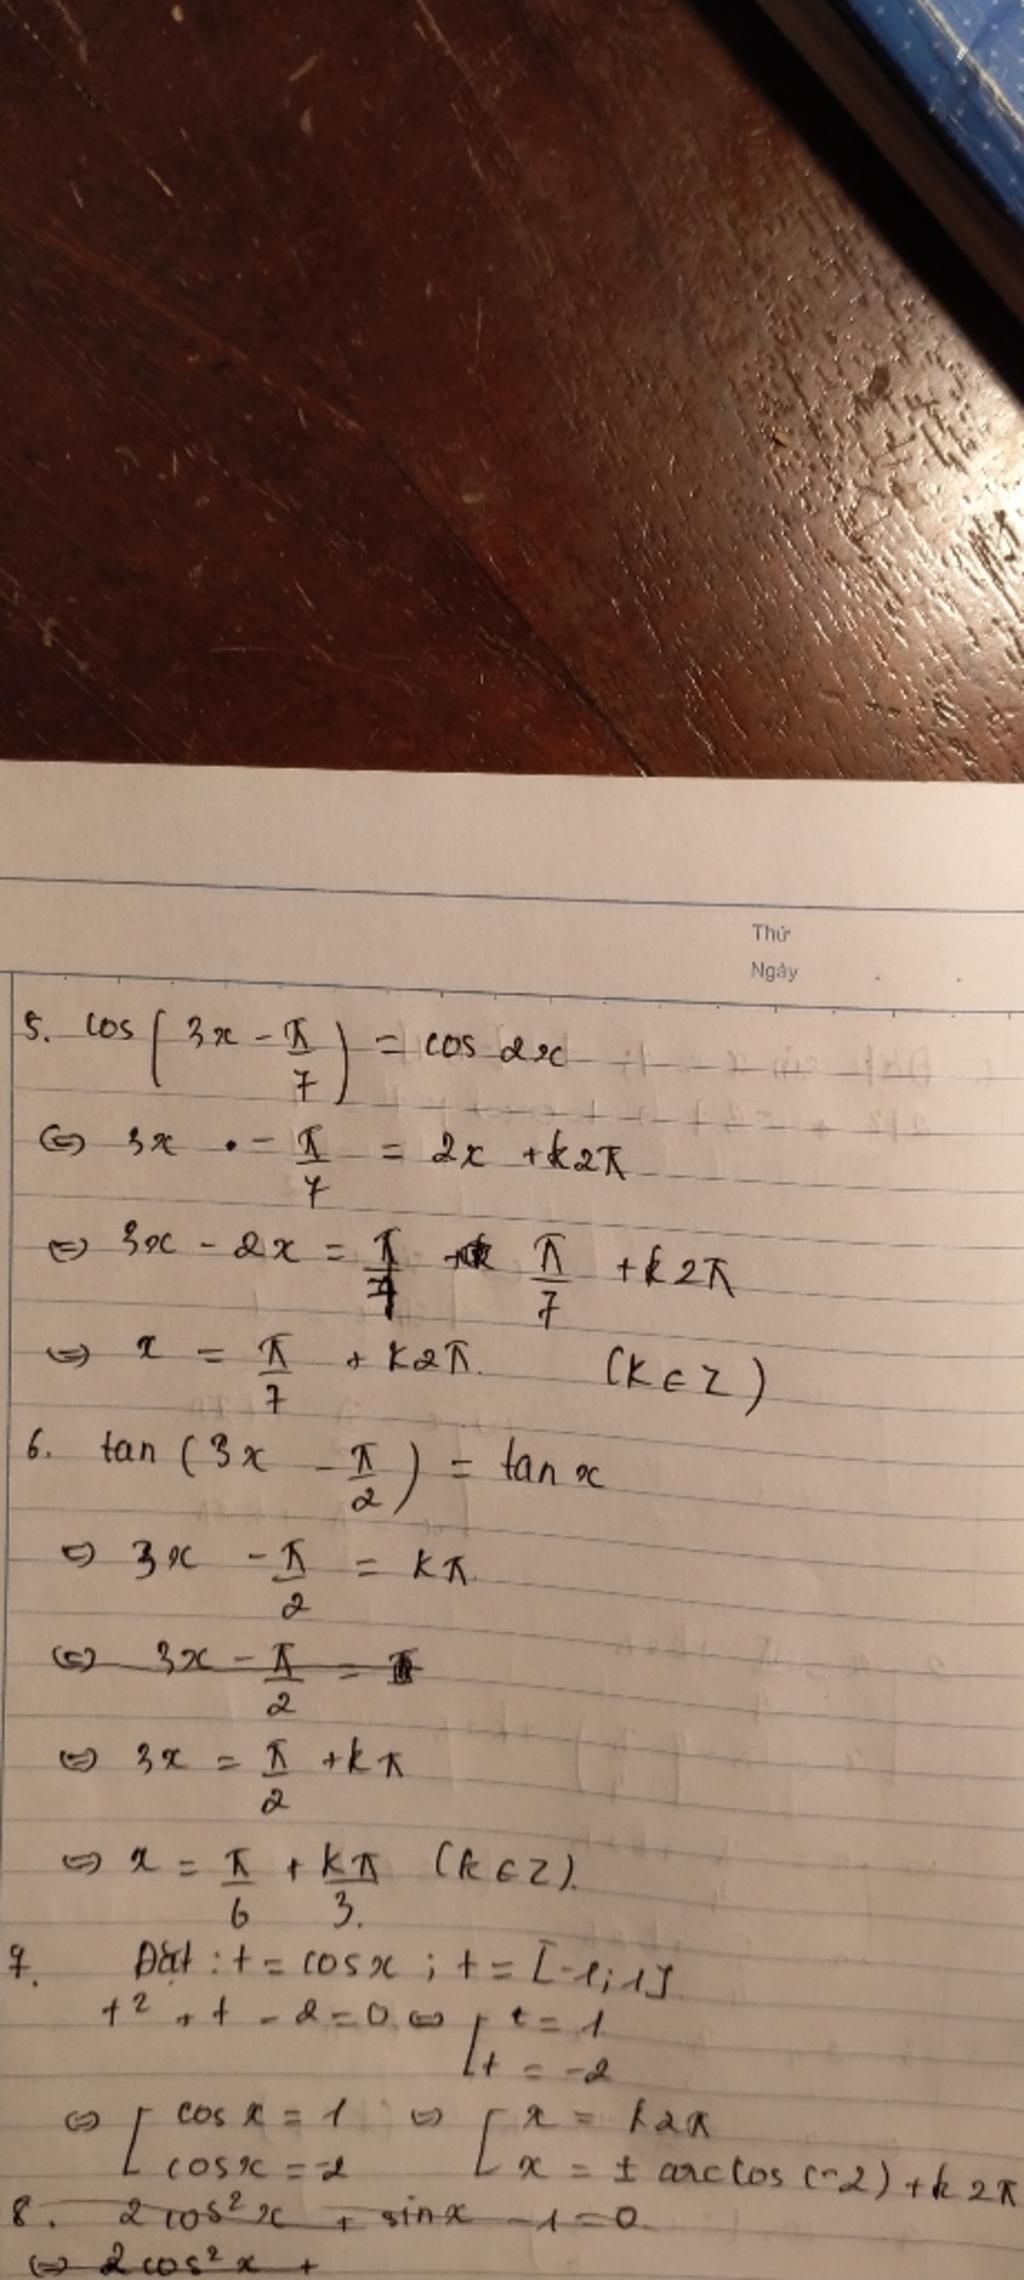 Thứ
Ngày
5. cos(3x - π/7) = cos 2x
⇔ 3x - π/7 = 2x + k2π
⇔ 3x - 2x = π/7 + k2π
⇔ x = π/7 + k2π. (k ∈ Z)
6. tan(3x - π/2) = tan x
⇔ 3x - π/2 = kπ
⇔ 3x - π/2 =
⇔ 3x = π/2 + kπ
⇔ x = π/6 + kπ/3. (k ∈ Z).
7. Đặt: t = cosx; t = [-1;1]
t² + t - 2 = 0 ⇔ [ t = 1
t = -2
⇔ [ cos x = 1 ⇔ [ x = k2π
cosx = -2 x = ± arccos(-2) + k2π
8. 2cos²x + sinx - 1 = 0
⇔ 2cos²x +